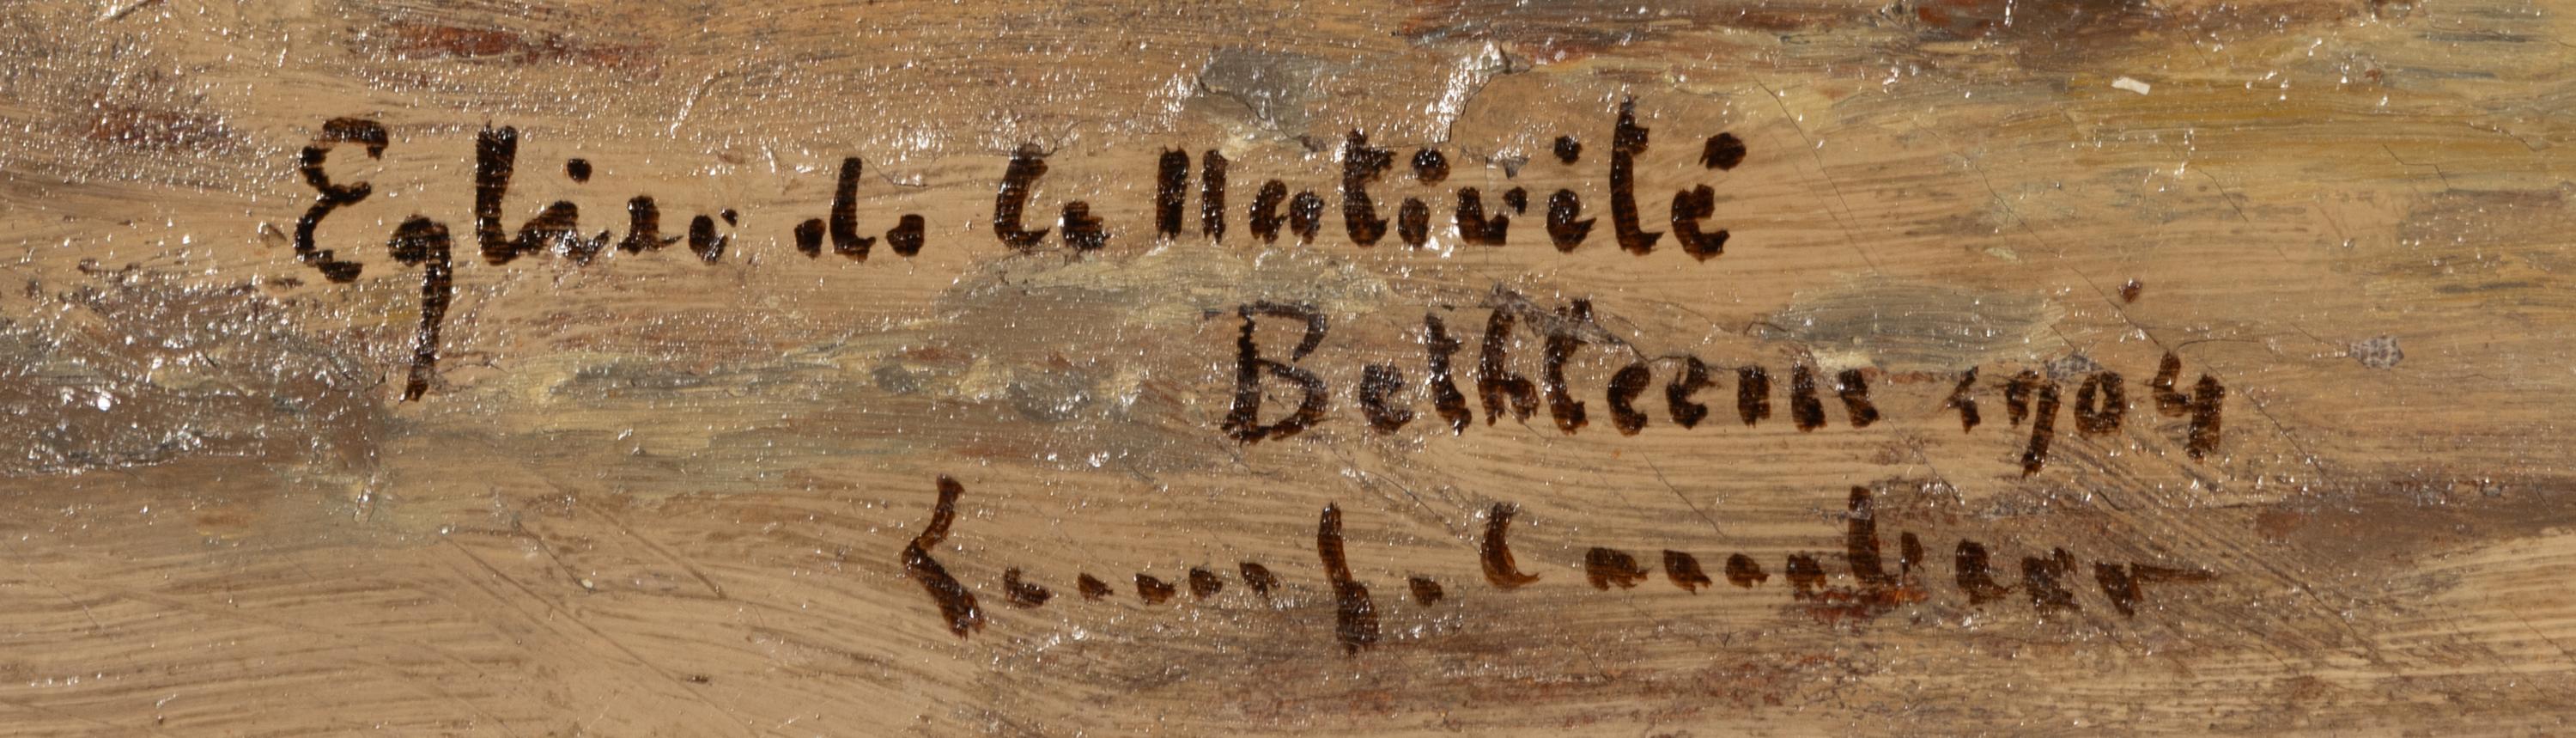 Eglise de la Nativité
Bethleem 1904